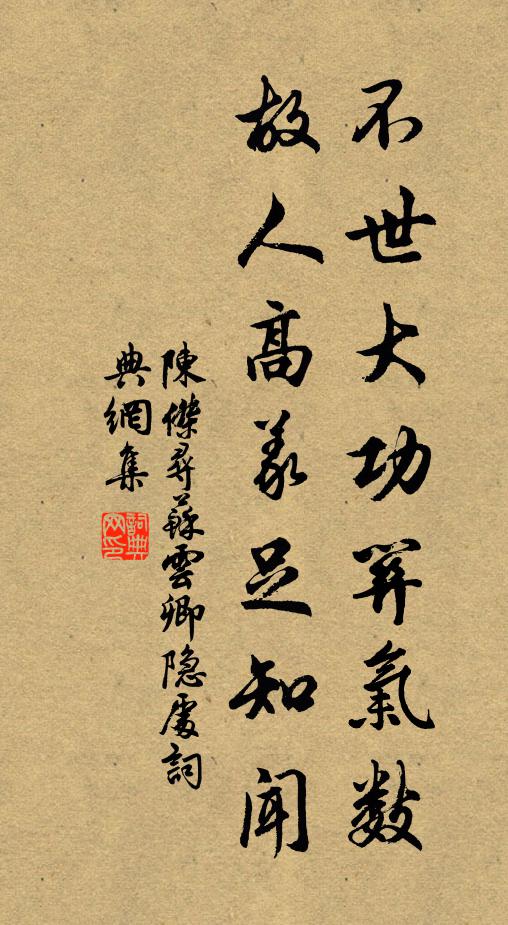 不世大功關氣數
故人高義足知聞
陳傑尋蘇雲卿隐處詞
典網集
詞典
网印